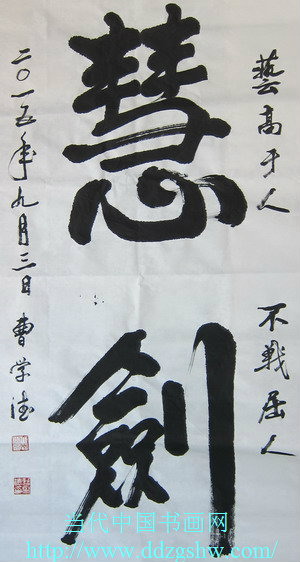 藝高于人
不戰屈人
慧劍
二〇一五年九月三日 曹学德
当代中国书画网
http://www.ddzgshw.com/